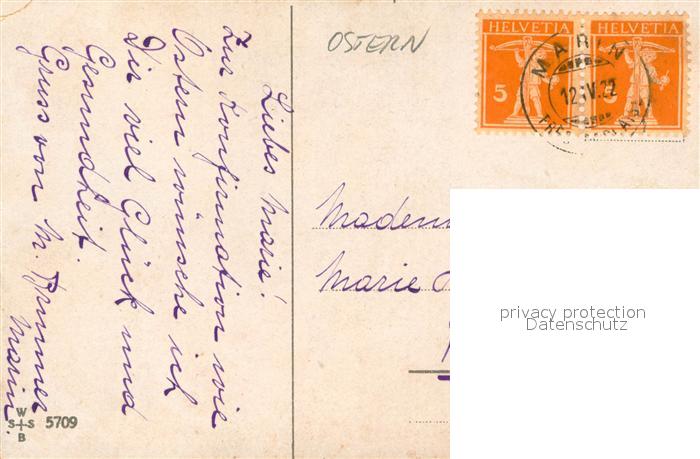 OSTERN
HELVETIA HELVETIA
5 5
MARIN
12.IV.22
Liebes Marie!
Zur Konfirmation wie
Ostern wünsche ich
Dir viel Glück und
Gesundheit.
Gruss von M. Brunner
Marin.
Madem
Marie
privacy protection
Datenschutz
W
S S
B
5709